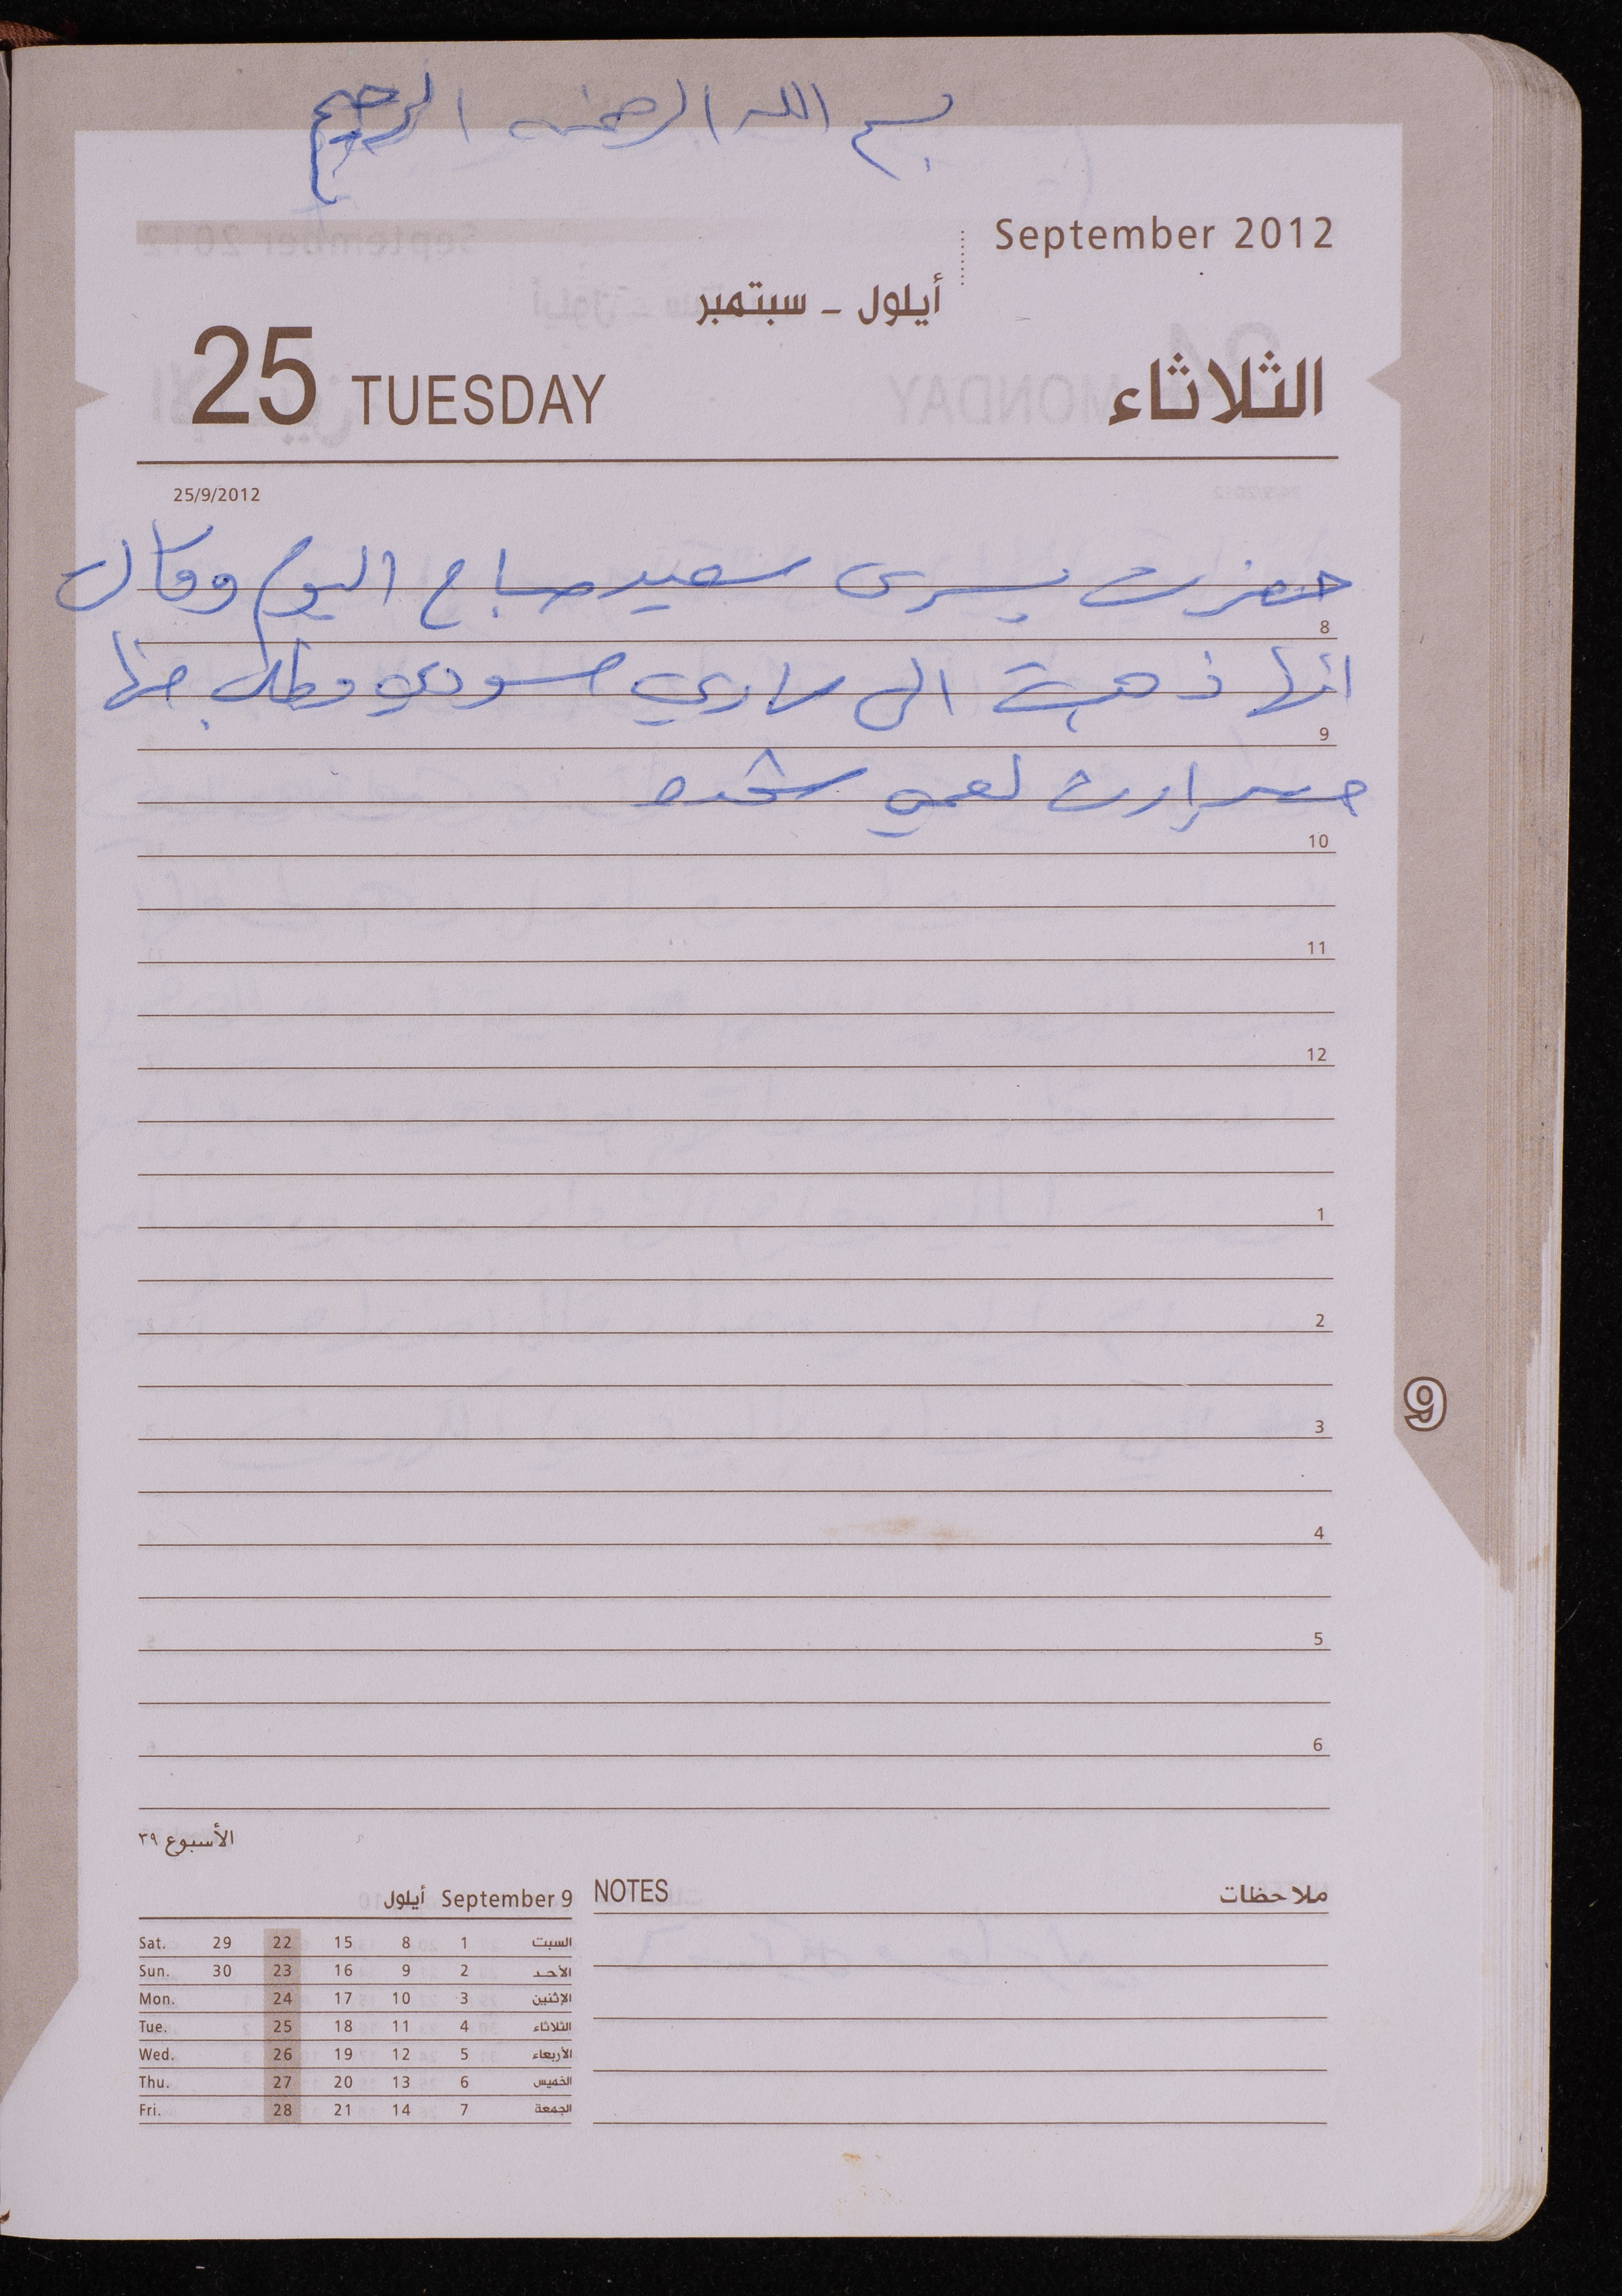 بسم الله الرحمن الرحيم
September 2012
أيلول - سبتمبر
25 TUESDAY الثلاثاء
25/9/2012
حضرت يسرى سعيد صباح اليوم وقال
8
انها ذهبت الى وطلب منها
9
لعمي
10
11
12
1
2
3
9
4
5
6
الأسبوع ٣٩
September 9 أيلول
NOTES ملاحظات
Sat. 29 22 15 8 1 السبت
Sun. 30 23 16 9 2 الأحد
Mon. 24 17 10 3 الإثنين
Tue. 25 18 11 4 الثلاثاء
Wed. 26 19 12 5 الأربعاء
Thu. 27 20 13 6 الخميس
Fri. 28 21 14 7 الجمعة